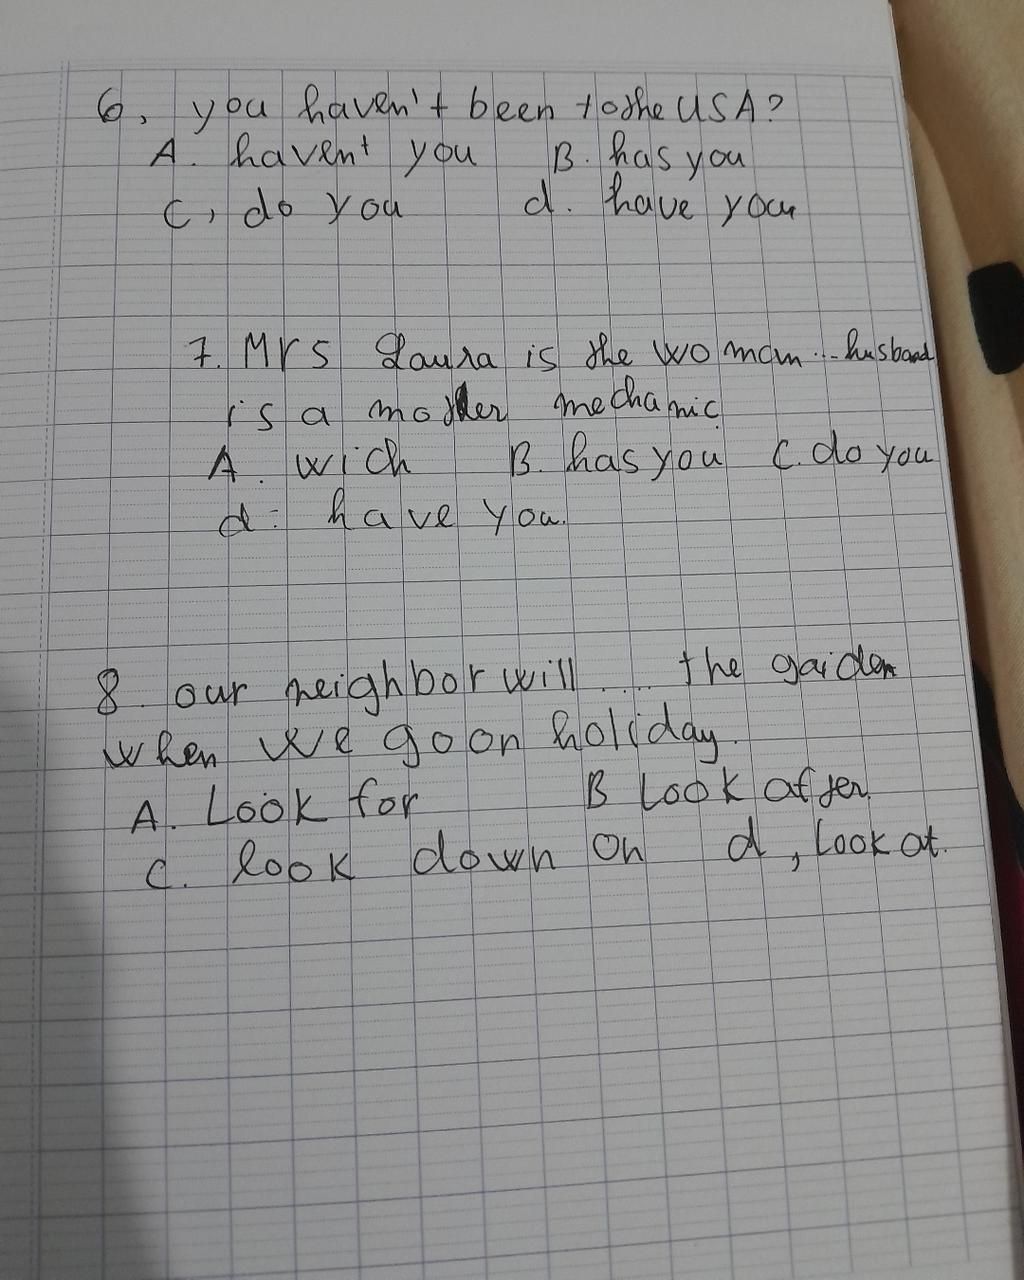 6, you haven't been to the USA?
A. havent you B. has you
C, do you d. have you
7. Mrs Laura is the woman ... husband
is a mother mechanic.
A. wich B. has you C. do you
d. have you.
8. our neighbor will .... the garden
when we go on holiday.
A. Look for B Look after
C. look down on d, Look at.